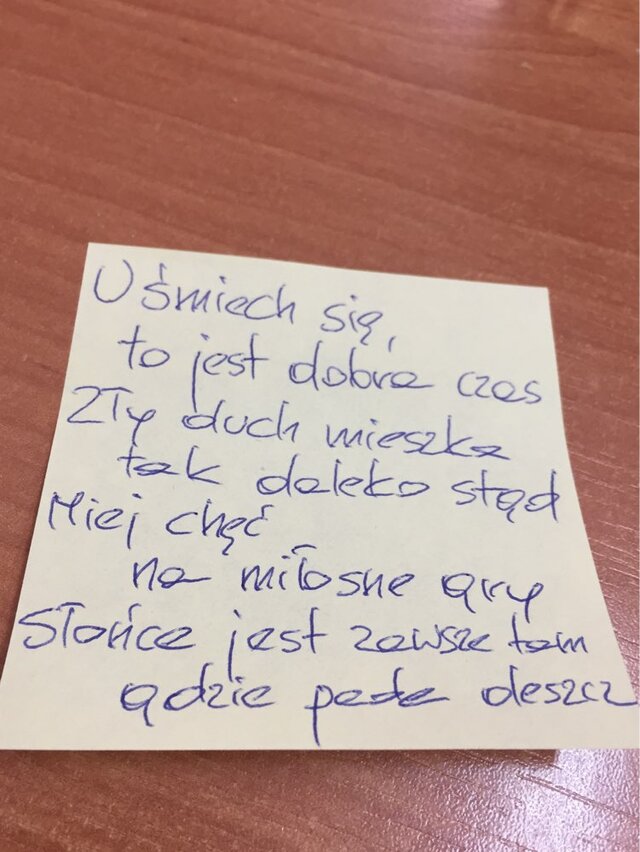 Uśmiech się,
to jest dobra czas
Zły duch mieszka
tak daleko stąd
Miej chęć
na miłosne gry
Słońce jest zawsze tam
gdzie pada deszcz